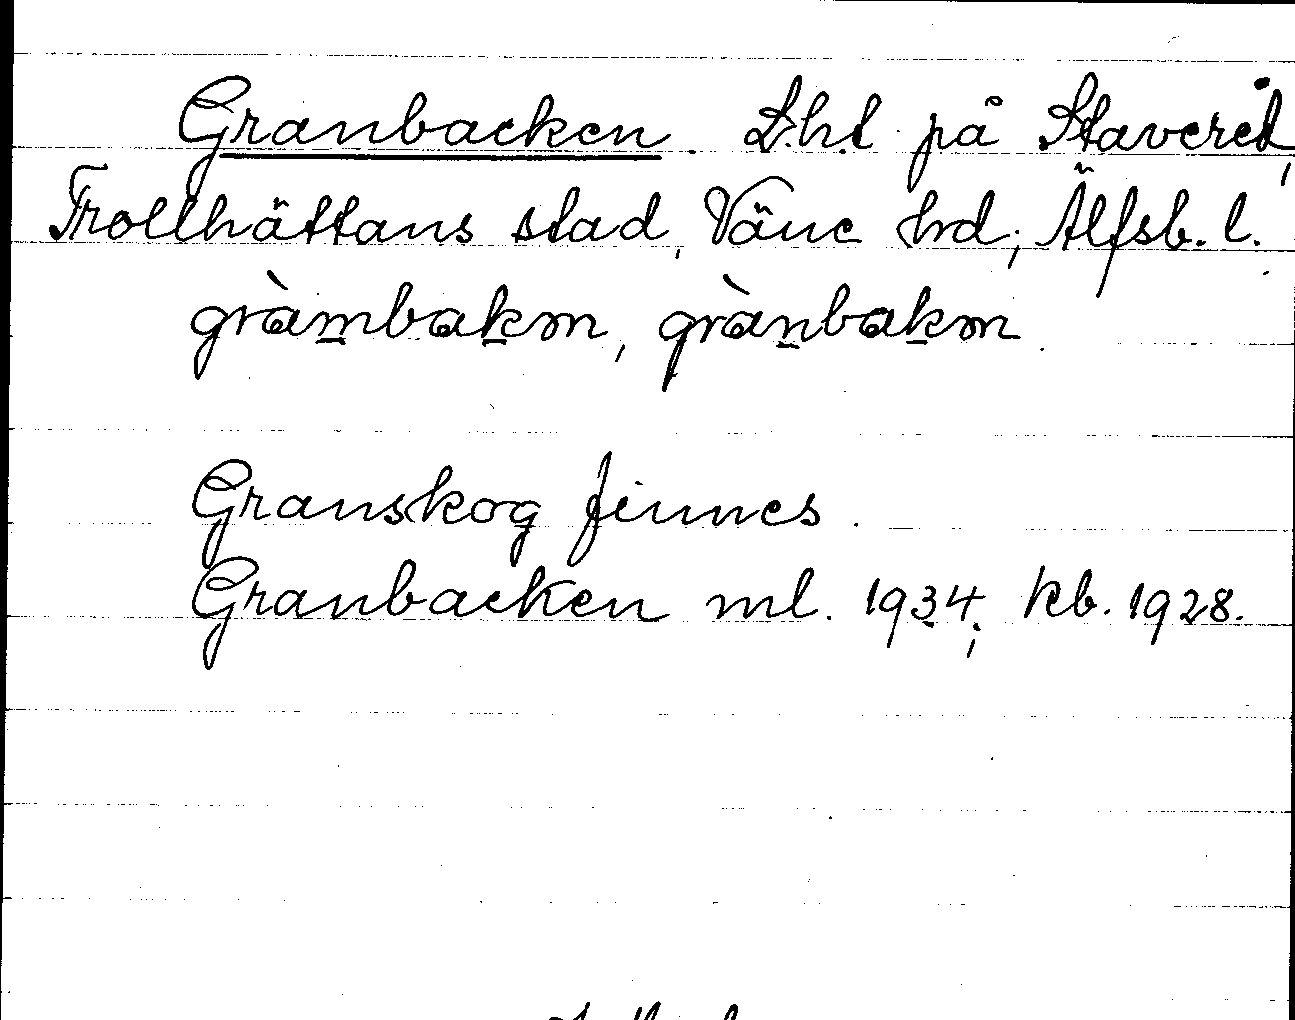 Granbacken. L.h.t på Stavered,
Trollhättans stad, Väne hrd, Älfsb. l.
gràmbakm, grànbakm
Granskog finnes.
Granbacken ml. 1934; kb. 1928.